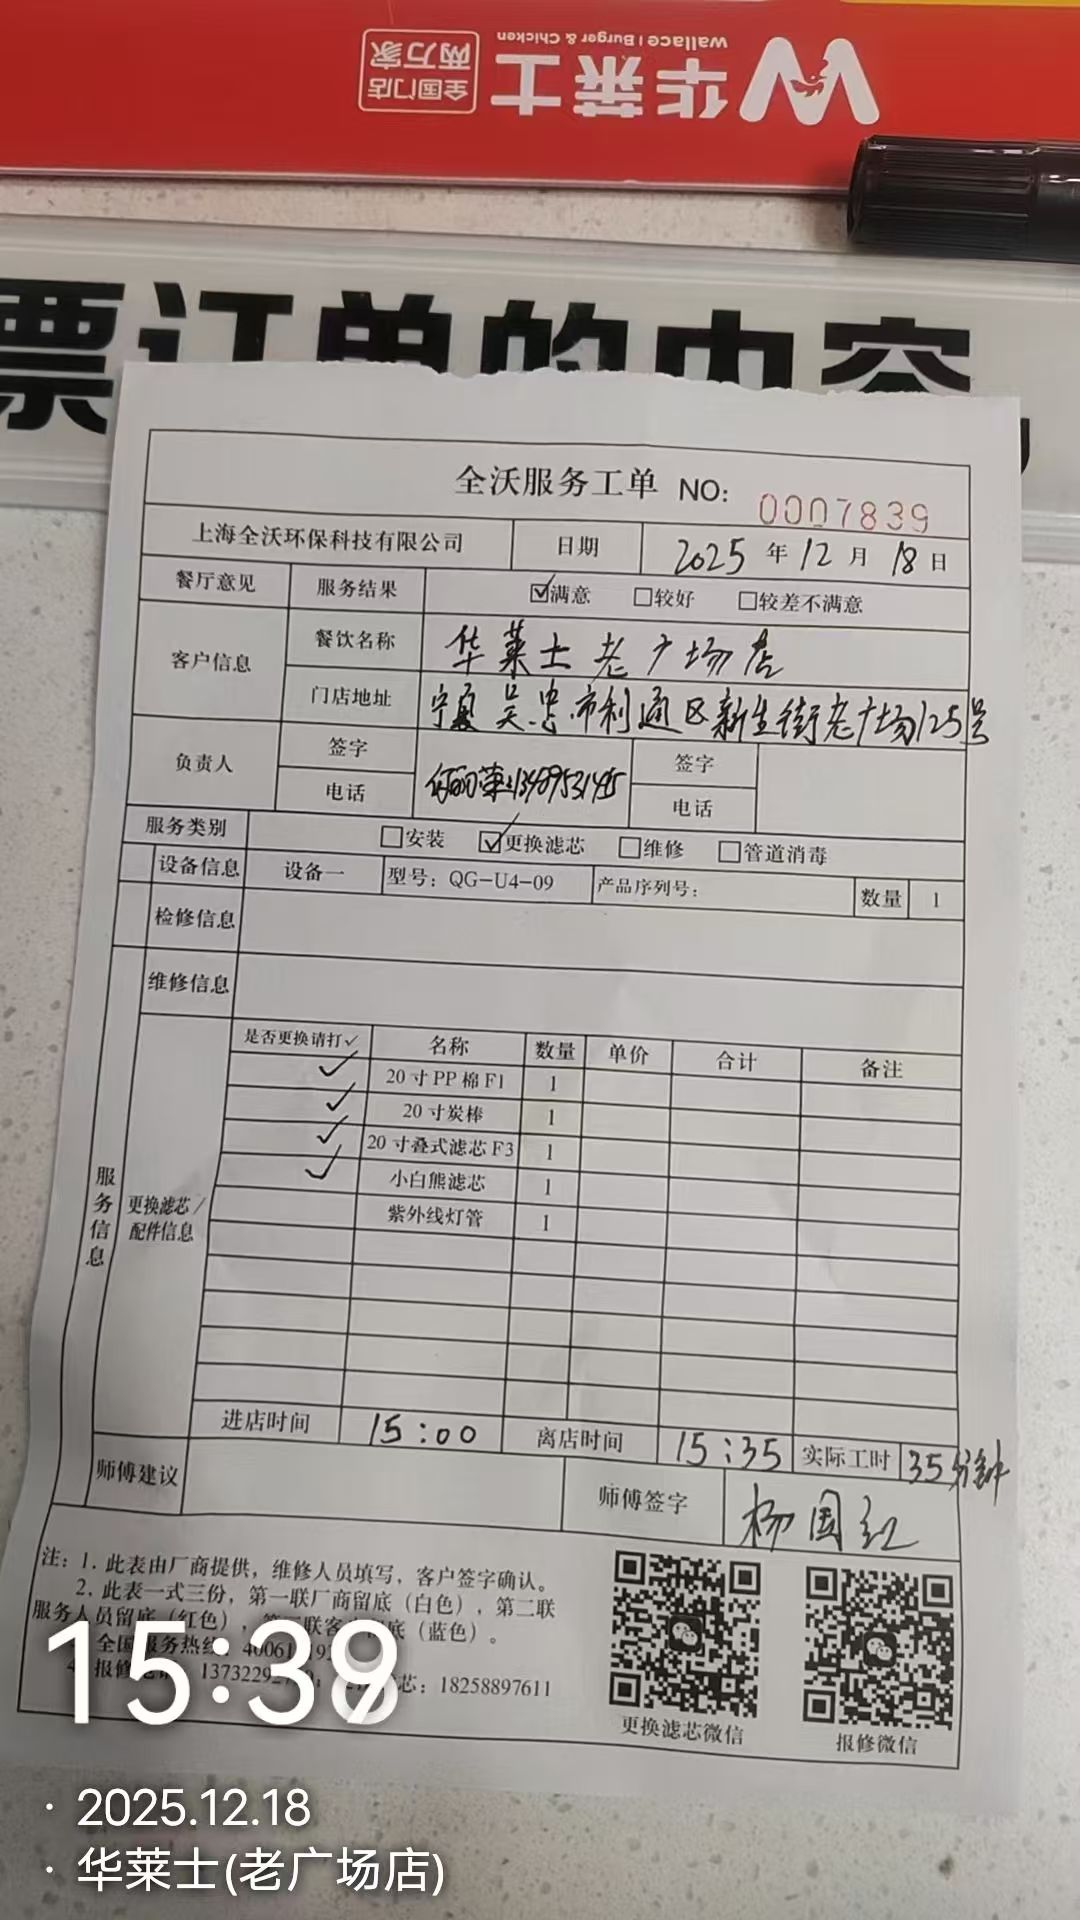 华莱士
Wallace | Burger & Chicken
全国门店
两万家
票订单的内容
全沃服务工单 NO: 0007839
上海全沃环保科技有限公司 日期 2025 年 12 月 18 日
餐厅意见 服务结果 ☑满意 □较好 □较差不满意
客户信息 餐饮名称 华莱士老广场店
门店地址 宁夏吴忠市利通区新生街老广场125号
负责人 签字 签字
电话 电话
服务类别 □安装 ☑更换滤芯 □维修 □管道消毒
设备信息 设备一 型号：QG-U4-09 产品序列号： 数量 1
检修信息
维修信息
服务信息 更换滤芯/配件信息
是否更换请打✓ 名称 数量 单价 合计 备注
✓ 20寸PP棉F1 1
✓ 20寸炭棒 1
✓ 20寸叠式滤芯F3 1
✓ 小白熊滤芯 1
紫外线灯管 1
进店时间 15:00 离店时间 15:35 实际工时 35分钟
师傅建议 师傅签字 杨国红
注：1. 此表由厂商提供，维修人员填写，客户签字确认。
2. 此表一式三份，第一联厂商留底（白色），第二联
服务人员留底（红色），第三联客户留底（蓝色）。
全国服务热线：
报修 芯：18258897611
更换滤芯微信 报修微信
15:39
· 2025.12.18
· 华莱士(老广场店)